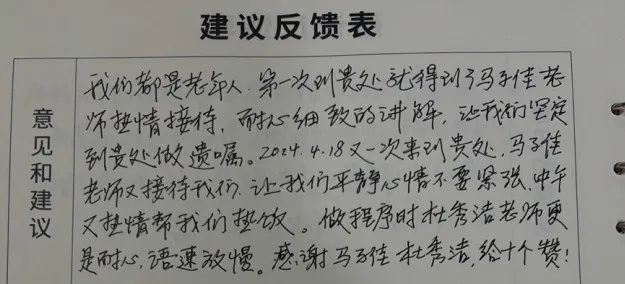 建议反馈表
意见和建议
我们都是老年人.第一次到贵处就得到了马子佳老
师热情接待,耐心细致的讲解,让我们坚定
到贵处做遗嘱。2024.4.18又一次来到贵处,马子佳
老师又接待我们.让我们平静心情不要紧张,中午
又热情帮我们热饭。做程序时杜秀洁老师更
是耐心,语速放慢。感谢马子佳 杜秀洁,给十个赞!